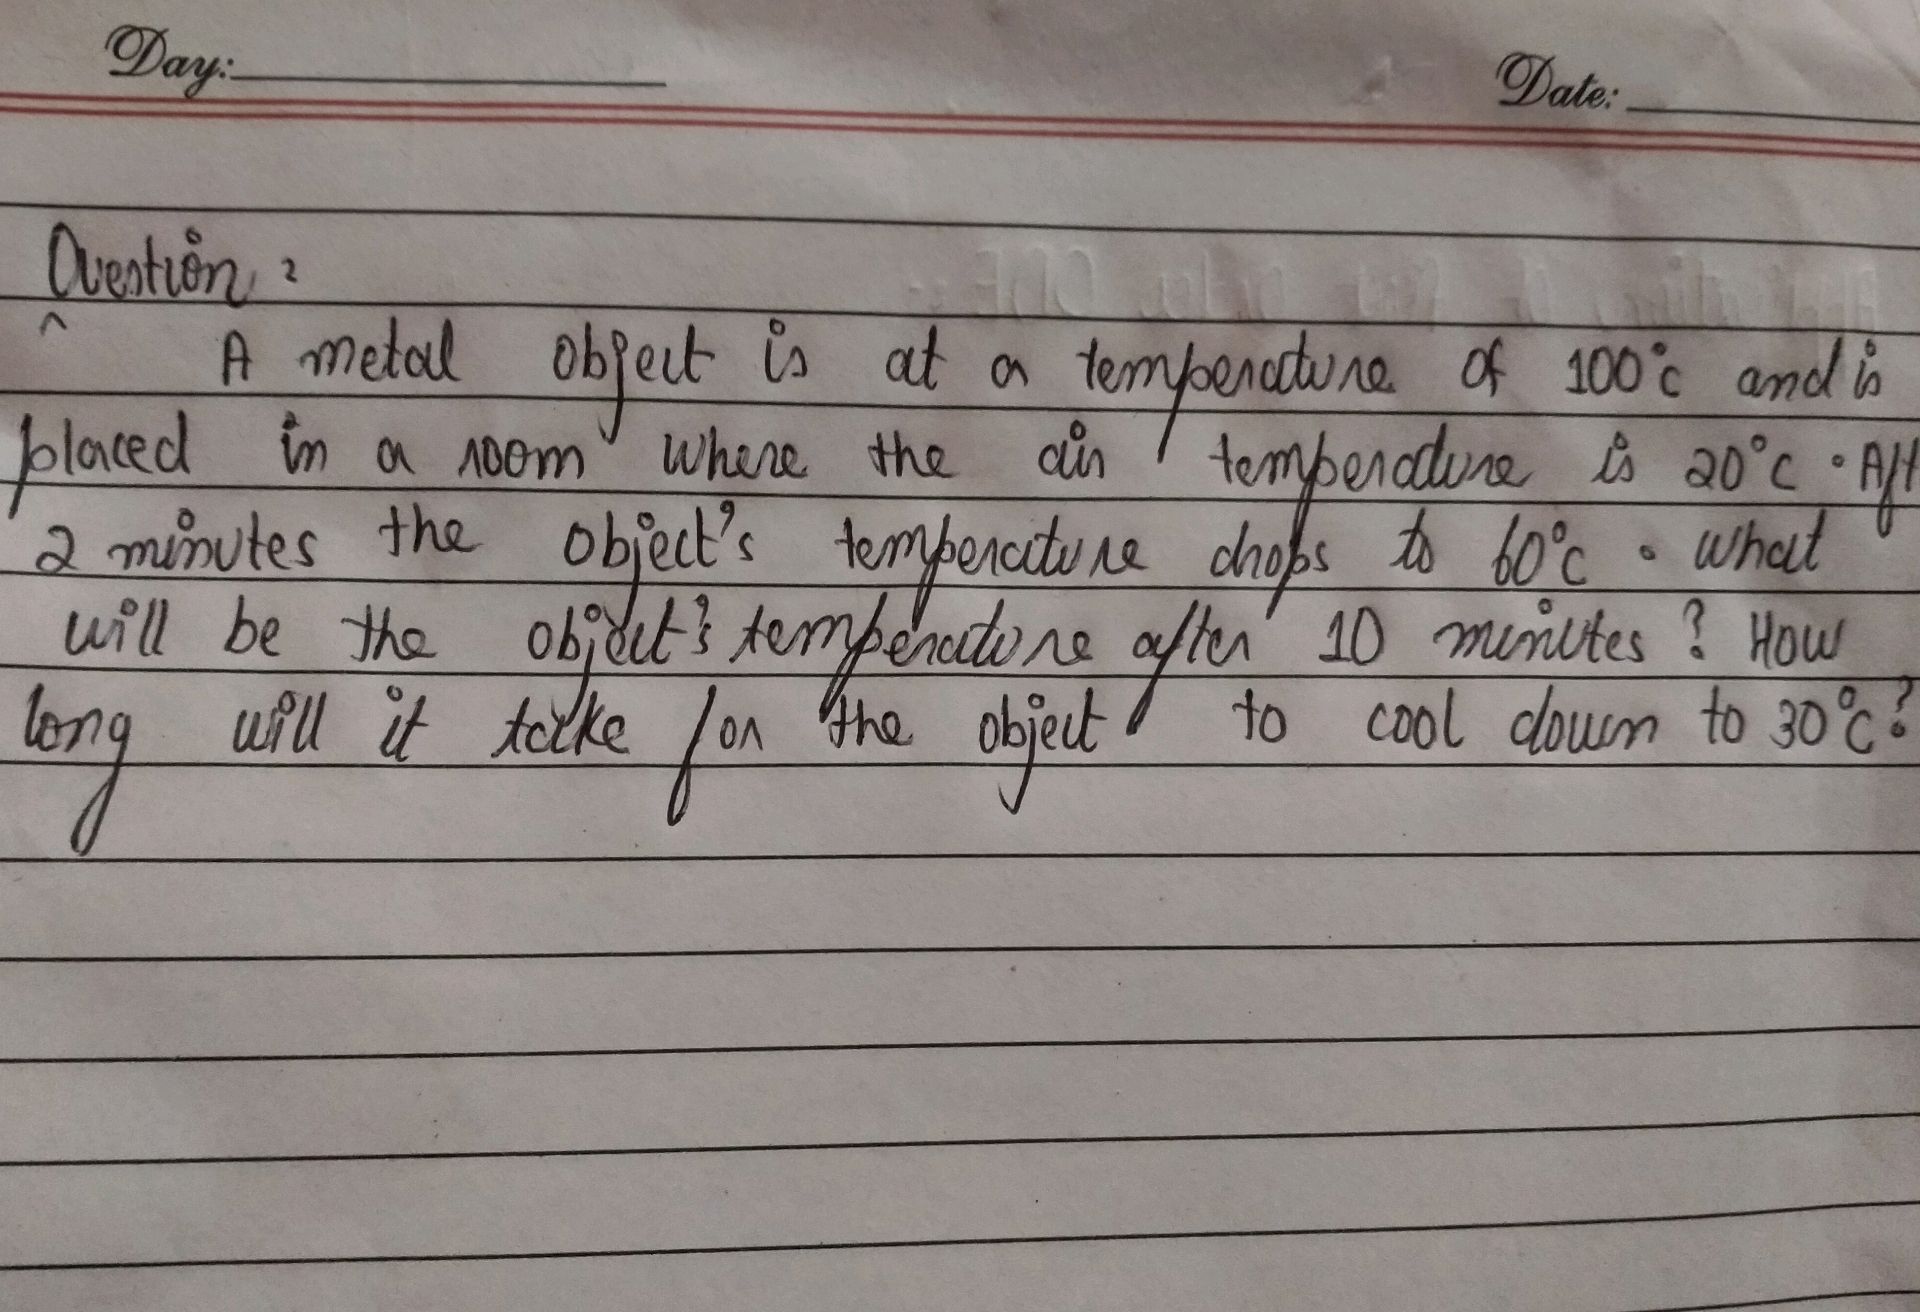 Day:
Date:
Question :
A metal object is at a temperature of 100°c and is
placed in a room where the air temperature is 20°c . Aft
2 minutes the object's temperature drops to 60°c . What
will be the object's temperature after 10 minutes ? How
long will it take for the object to cool down to 30°c ?